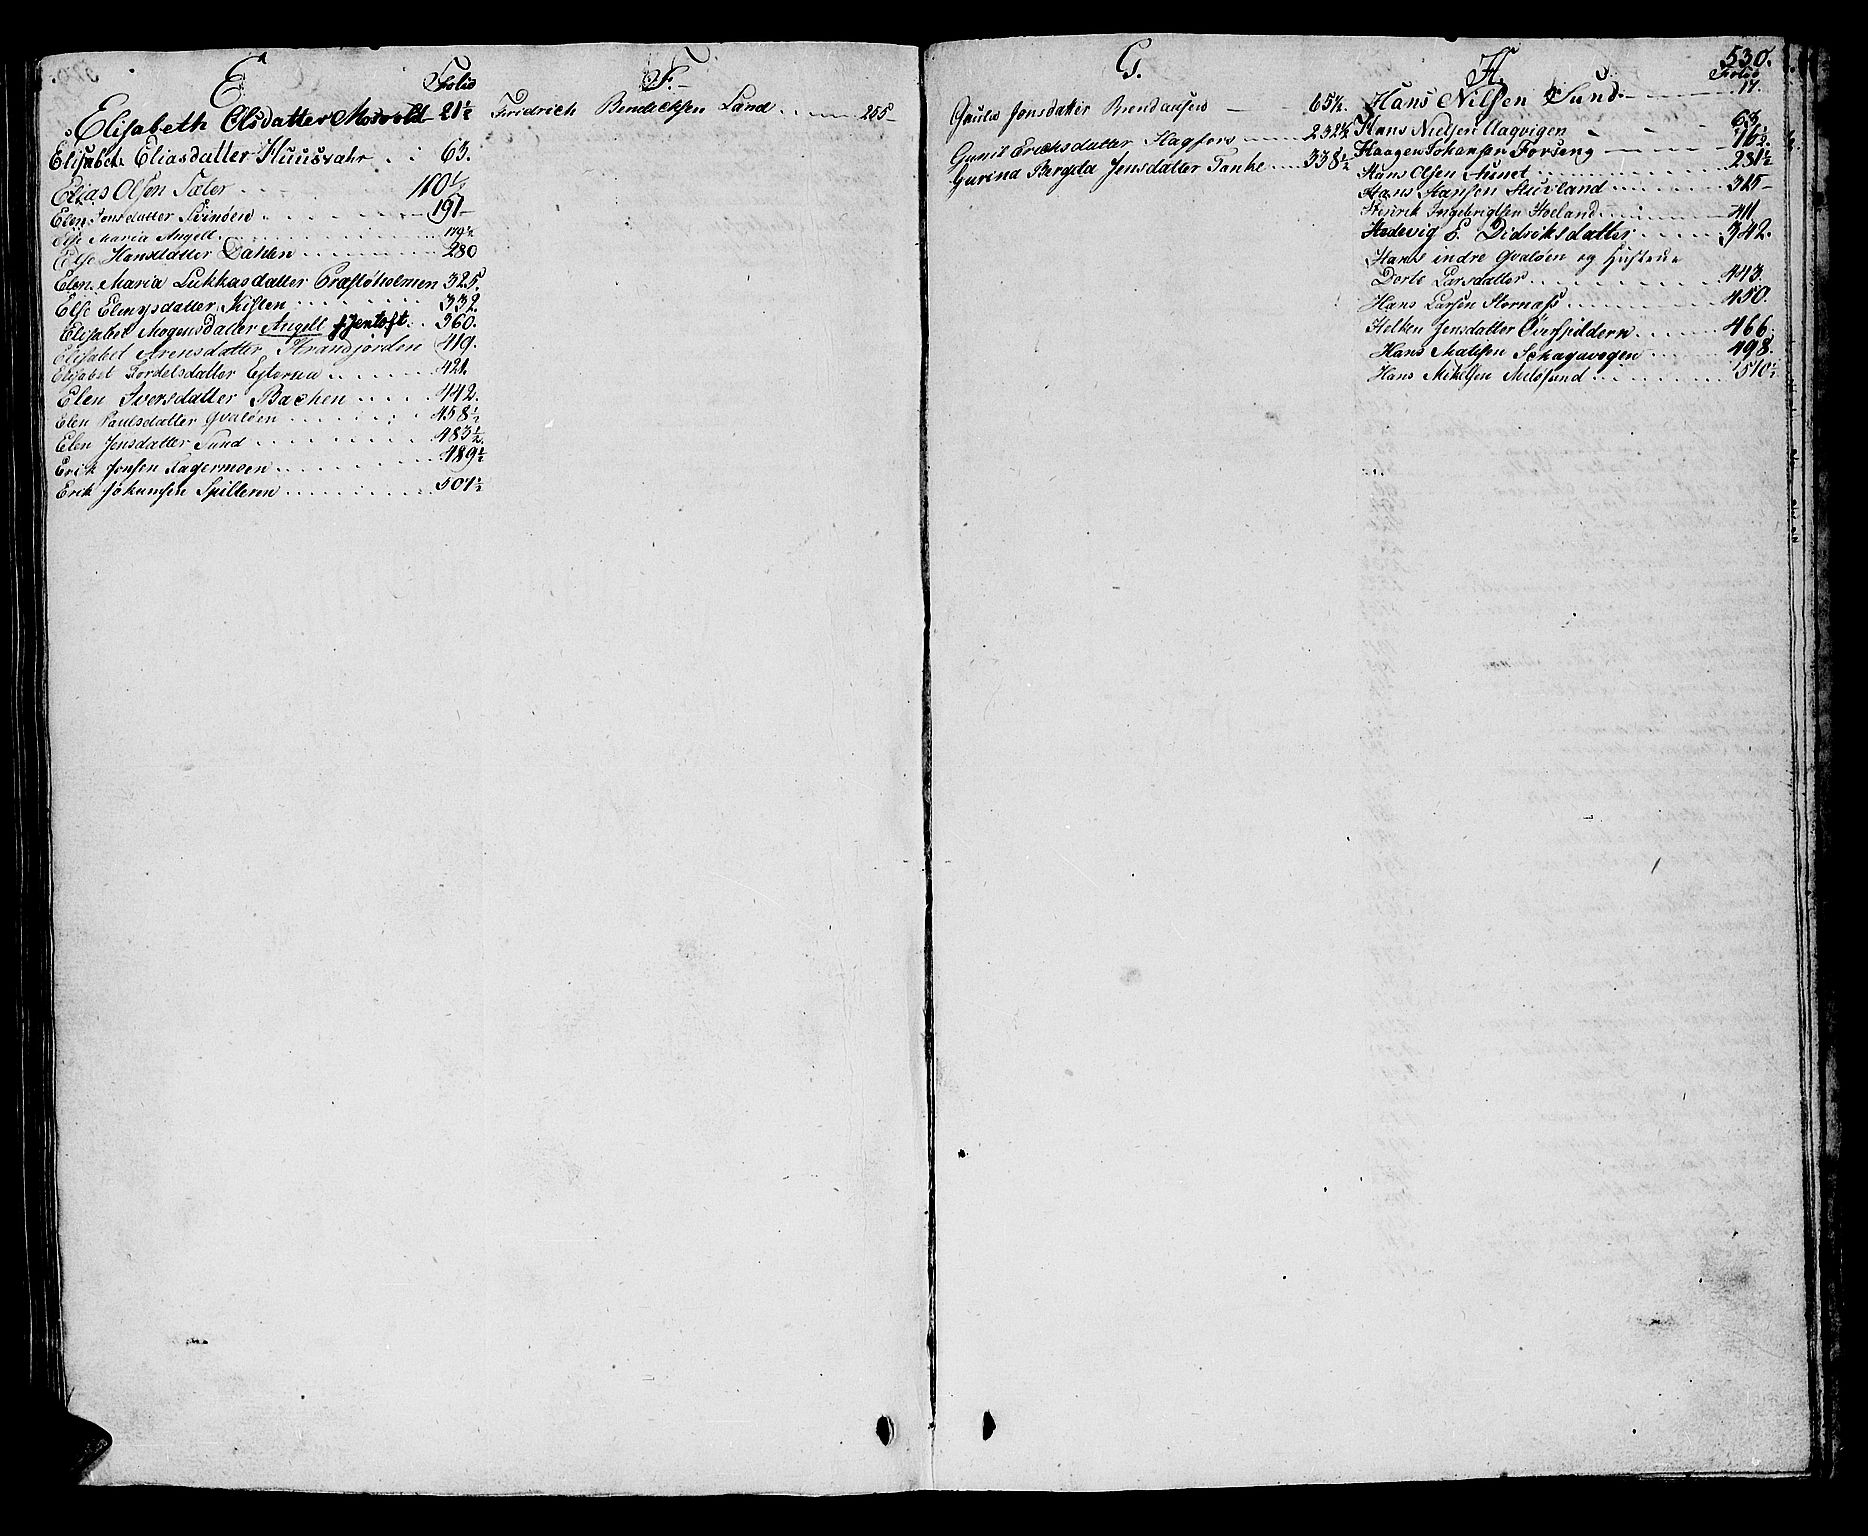 E
Folio
Elisabeth Olsdatter Mosvold 21½
Elisabet Eliasdatter Huusvahr 63.
Elias Olsen Sæter 110½
Elen Jensdatter Svinøen 191
Else Maria Angell 179½
Else Hansdatter Dahlen 280
Elen Maria Lukkasdatter Præstøholmen 325.
Else Elenysdatter Kilten 332.
Elisabet Mogensdatter Angell f. Jentoft 360.
Elisabet Arensdatter Strandjorden 419.
Elisabet Tordelsdatter Ejteraa 421.
Elen Iversdatter Bachen 442.
Elen Paulsdatter Qvaløen 458½
Elen Jensdatter Sund 483½
Erik Jonsen Hagermoen 489½
Erik Johansen Spilderen 507½
F.
Friedrich Bendicksen Land 255
G.
Jonsdatter 65½.
Gunil Ericksdatter Hagfors 232½
Gurina Bergita Jensdatter Tanke 338½
530.
H.
Folio
Hans Nilsen Sund 17.
Hans Nielsen Aagvigen 63.
Haagen Johansen Forseng 76½
Hans Olsen 281½
Hans Hansen 325
Henrik Ingebrigtsen Hoeland 411
Hedevig E. Didriksdatter 342.
Hans indre Qvaløen og Hustrue
Dorte Larsdatter 443.
Hans Larsen Stornæss 450.
Helken Jensdatter Øverspildern 466.
Hans Matisen Schagavogen 498.
Hans Mikelsen Meløsund 510½